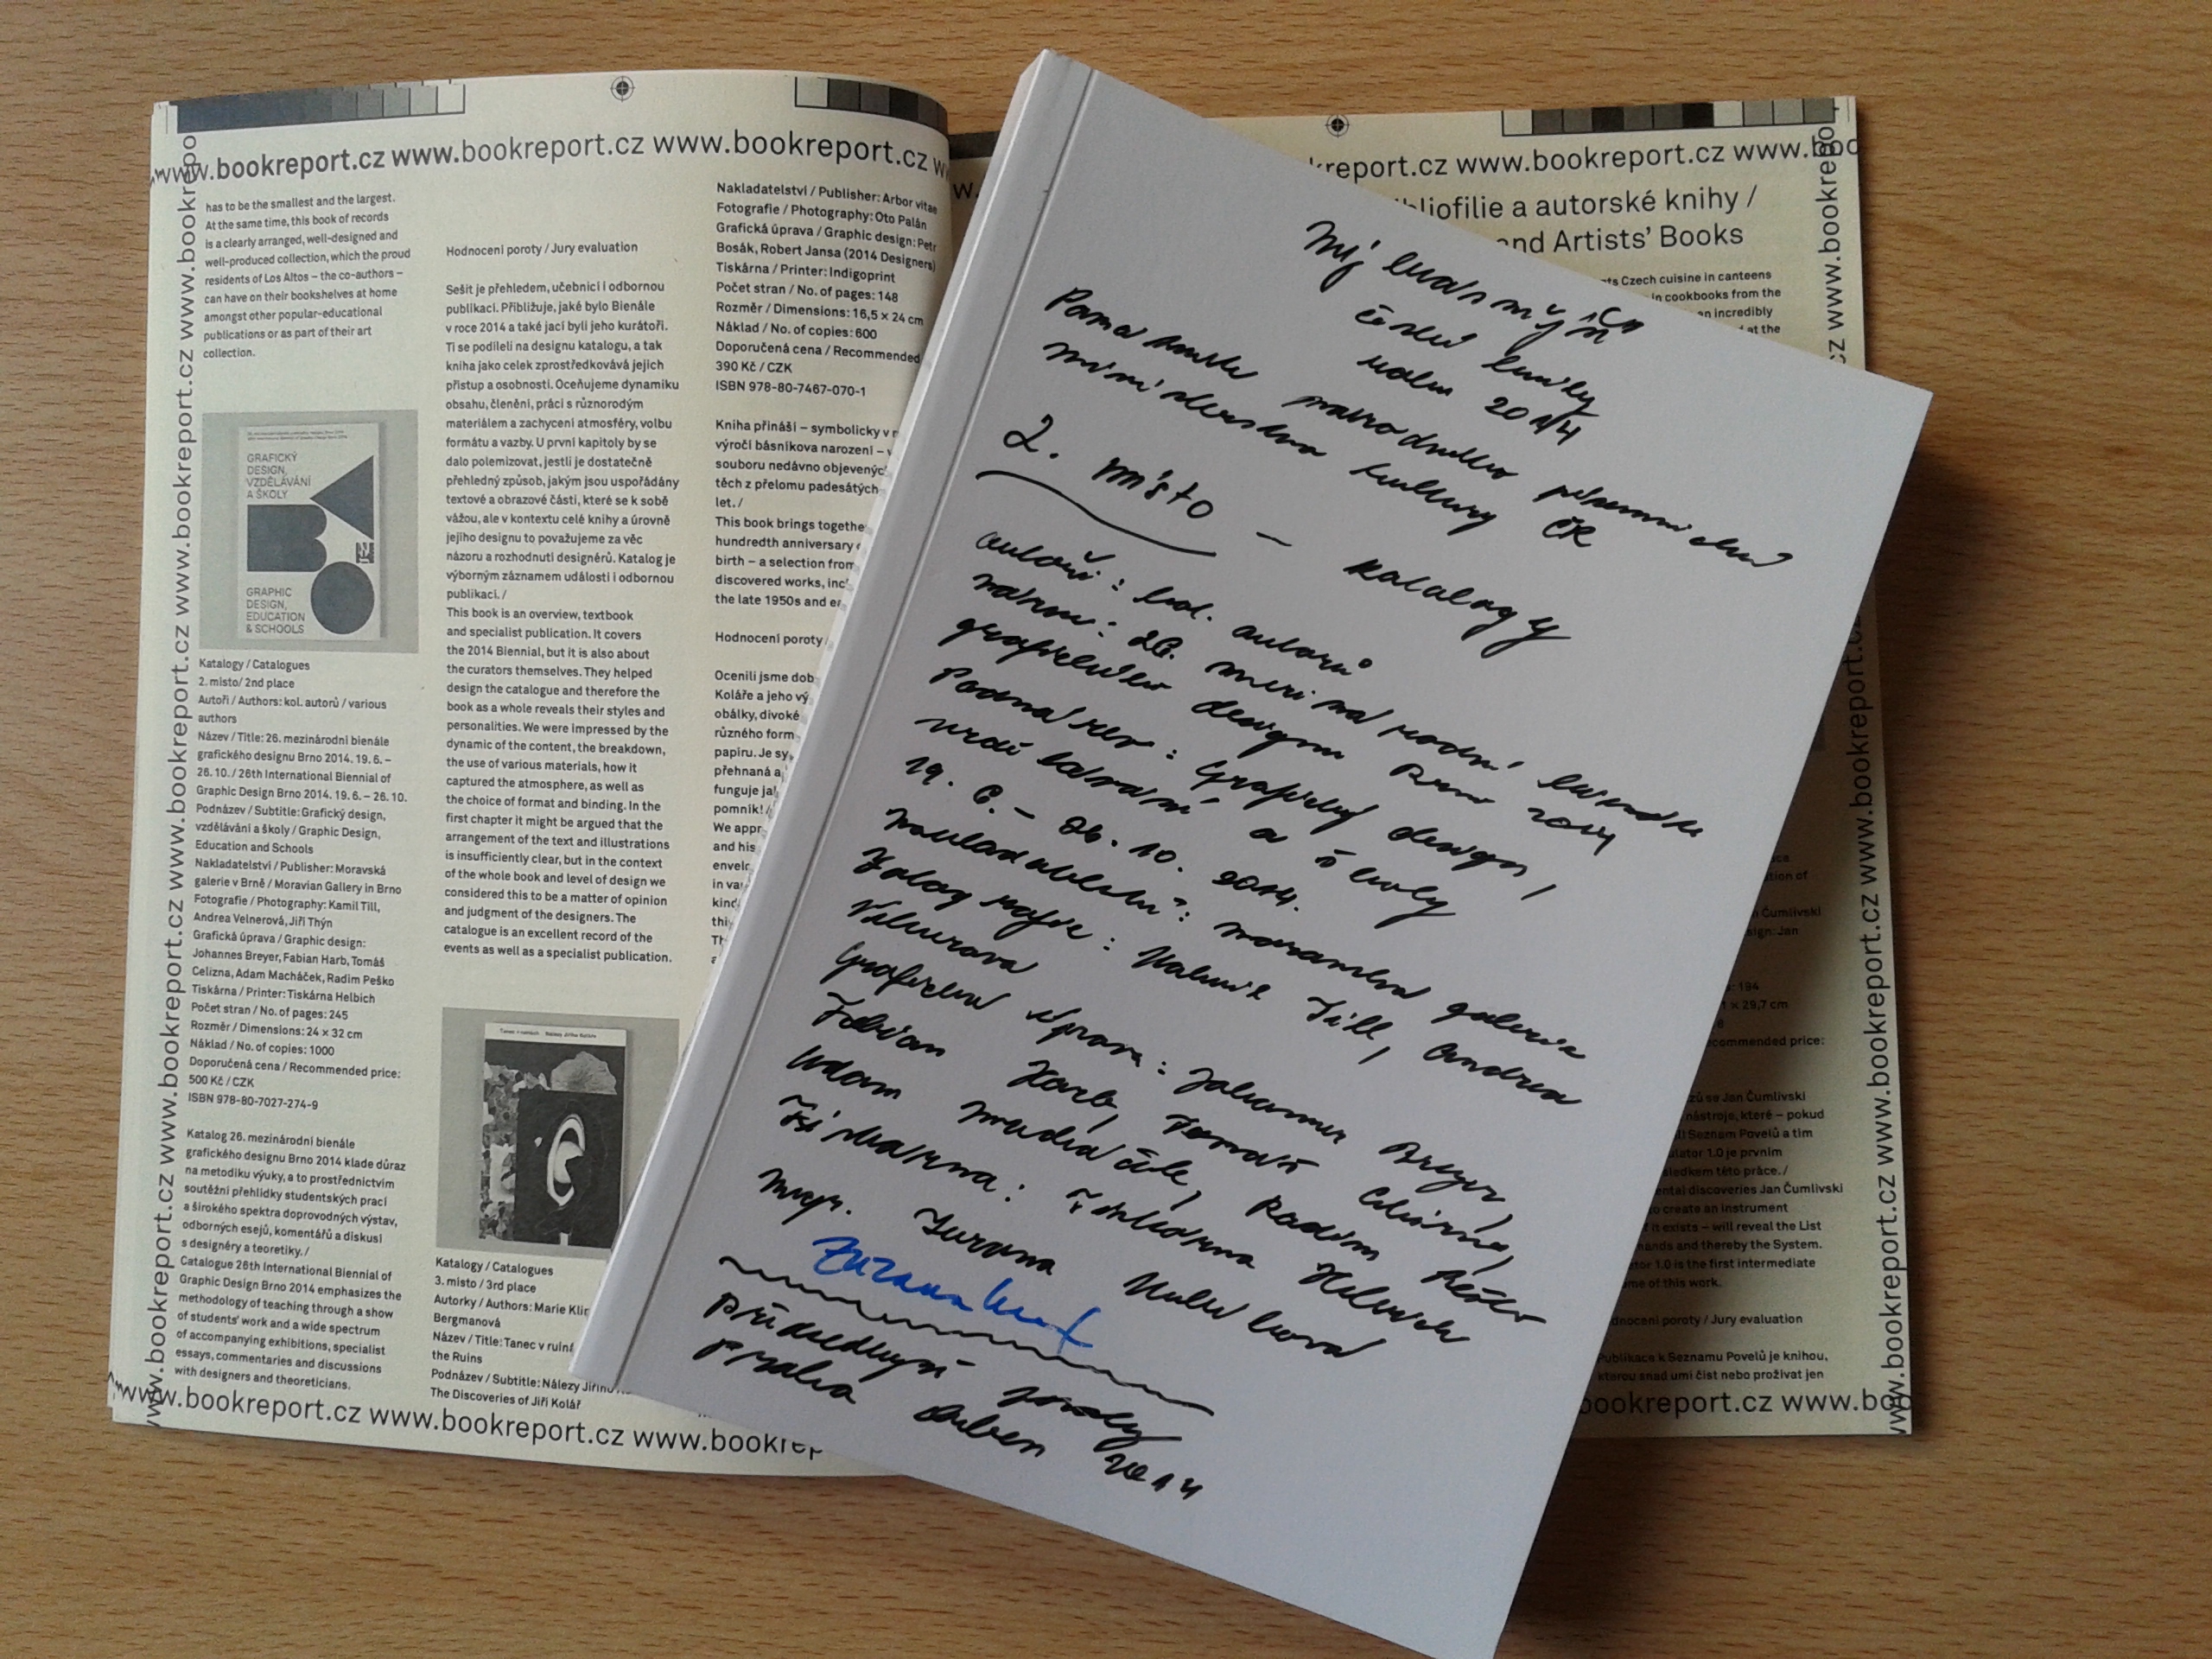 www.bookreport.cz www.bookreport.cz www.bookreport.cz
has to be the smallest and the largest.
At the same time, this book of records
is a clearly arranged, well-designed and
well-produced collection, which the proud
residents of Los Altos – the co-authors –
can have on their bookshelves at home
amongst other popular-educational
publications or as part of their art
collection.
GRAFICKÝ
DESIGN,
VZDĚLÁVÁNÍ
A ŠKOLY
GRAPHIC
DESIGN,
EDUCATION
& SCHOOLS
Katalogy / Catalogues
2. místo/ 2nd place
Autoři / Authors: kol. autorů / various
authors
Název / Title: 26. mezinárodní bienále
grafického designu Brno 2014. 19. 6. –
26. 10. / 26th International Biennial of
Graphic Design Brno 2014. 19. 6. – 26. 10.
Podnázev / Subtitle: Grafický design,
vzdělávání a školy / Graphic Design,
Education and Schools
Nakladatelství / Publisher: Moravská
galerie v Brně / Moravian Gallery in Brno
Fotografie / Photography: Kamil Till,
Andrea Velnerová, Jiří Thýn
Grafická úprava / Graphic design:
Johannes Breyer, Fabian Harb, Tomáš
Celizna, Adam Macháček, Radim Peško
Tiskárna / Printer: Tiskárna Helbich
Počet stran / No. of pages: 245
Rozměr / Dimensions: 24 × 32 cm
Náklad / No. of copies: 1000
Doporučená cena / Recommended price:
500 Kč / CZK
ISBN 978-80-7027-274-9
Katalog 26. mezinárodní bienále
grafického designu Brno 2014 klade důraz
na metodiku výuky, a to prostřednictvím
soutěžní přehlídky studentských prací
a širokého spektra doprovodných výstav,
odborných esejů, komentářů a diskusí
s designéry a teoretiky. /
Catalogue 26th International Biennial of
Graphic Design Brno 2014 emphasizes the
methodology of teaching through a show
of students' work and a wide spectrum
of accompanying exhibitions, specialist
essays, commentaries and discussions
with designers and theoreticians.
Hodnocení poroty / Jury evaluation
Sešit je přehledem, učebnicí i odbornou
publikací. Přibližuje, jaké bylo Bienále
v roce 2014 a také jací byli jeho kurátoři.
Ti se podíleli na designu katalogu, a tak
kniha jako celek zprostředkovává jejich
přístup a osobnosti. Oceňujeme dynamiku
obsahu, členění, práci s různorodým
materiálem a zachycení atmosféry, volbu
formátu a vazby. U první kapitoly by se
dalo polemizovat, jestli je dostatečně
přehledný způsob, jakým jsou uspořádány
textové a obrazové části, které se k sobě
vážou, ale v kontextu celé knihy a úrovně
jejího designu to považujeme za věc
názoru a rozhodnutí designérů. Katalog je
výborným záznamem události i odbornou
publikací. /
This book is an overview, textbook
and specialist publication. It covers
the 2014 Biennial, but it is also about
the curators themselves. They helped
design the catalogue and therefore the
book as a whole reveals their styles and
personalities. We were impressed by the
dynamic of the content, the breakdown,
the use of various materials, how it
captured the atmosphere, as well as
the choice of format and binding. In the
first chapter it might be argued that the
arrangement of the text and illustrations
is insufficiently clear, but in the context
of the whole book and level of design we
considered this to be a matter of opinion
and judgment of the designers. The
catalogue is an excellent record of the
events as well as a specialist publication.
Katalogy / Catalogues
3. místo / 3rd place
Autorky / Authors: Marie
Bergmanová
Název / Title: Tanec v
the Ruins
Podnázev / Subtitle: Nálezy
The Discoveries of Jiří Kolář
Nakladatelství / Publisher: Arbor vitae
Fotografie / Photography: Oto Palán
Grafická úprava / Graphic design: Petr
Bosák, Robert Jansa (2014 Designers)
Tiskárna / Printer: Indigoprint
Počet stran / No. of pages: 148
Rozměr / Dimensions: 16,5 × 24 cm
Náklad / No. of copies: 600
Doporučená cena / Recommended
390 Kč / CZK
ISBN 978-80-7467-070-1
Kniha přináší – symbolicky v
výročí básníkova narození –
souboru nedávno
těch z přelomu padesátých
let. /
This book brings
hundredth anniversary
birth – a selection from
discovered works,
the late 1950s and
Hodnocení poroty /
Ocenili jsme
Koláře a jeho
obálky, divoké
různého
papíru. Je
přehnaná a
funguje
pomník! /
We
and his
in
www.bookreport.cz www.bookreport.cz
www.bookreport.cz
bliofilie a autorské knihy /
and Artists' Books
Czech cuisine in canteens
in cookbooks from the
incredibly
at the
Nejkrásnější
české knihy
roku 2014
Památník národního písemnictví
ministerstvo kultury ČR
2. místo – Katalogy
autoři: kol. autorů
název: 26. mezinárodní bienále
grafického design Brno 2014
Podnázev: Grafický design,
vzdělávání a školy
19. 6. – 26. 10. 2014.
nakladatelství: moravská galerie
Fotografie: Kamil Till, Andrea
Velnerova
Grafická úprava: Johannes Breyer,
Fabian Harb, Tomáš Celizna,
Adam Macháček, Radim Peško
Tiskárna: Tiskárna Helbich
Mgr. Zuzana
Zuzana
předsedkyně poroty
Praha duben 2014
Čumlivski
Jan
194
× 29,7 cm
price:
se Jan Čumlivski
nástroje, které – pokud
Seznam Povelů a tím
1.0 je prvním
této práce. /
discoveries Jan Čumlivski
create an instrument
it exists – will reveal the List
and thereby the System.
1.0 is the first intermediate
of this work.
poroty / Jury evaluation
Publikace k Seznamu Povelů je knihou,
kterou snad umí číst nebo prožívat jen
bookreport.cz www.bookreport.cz